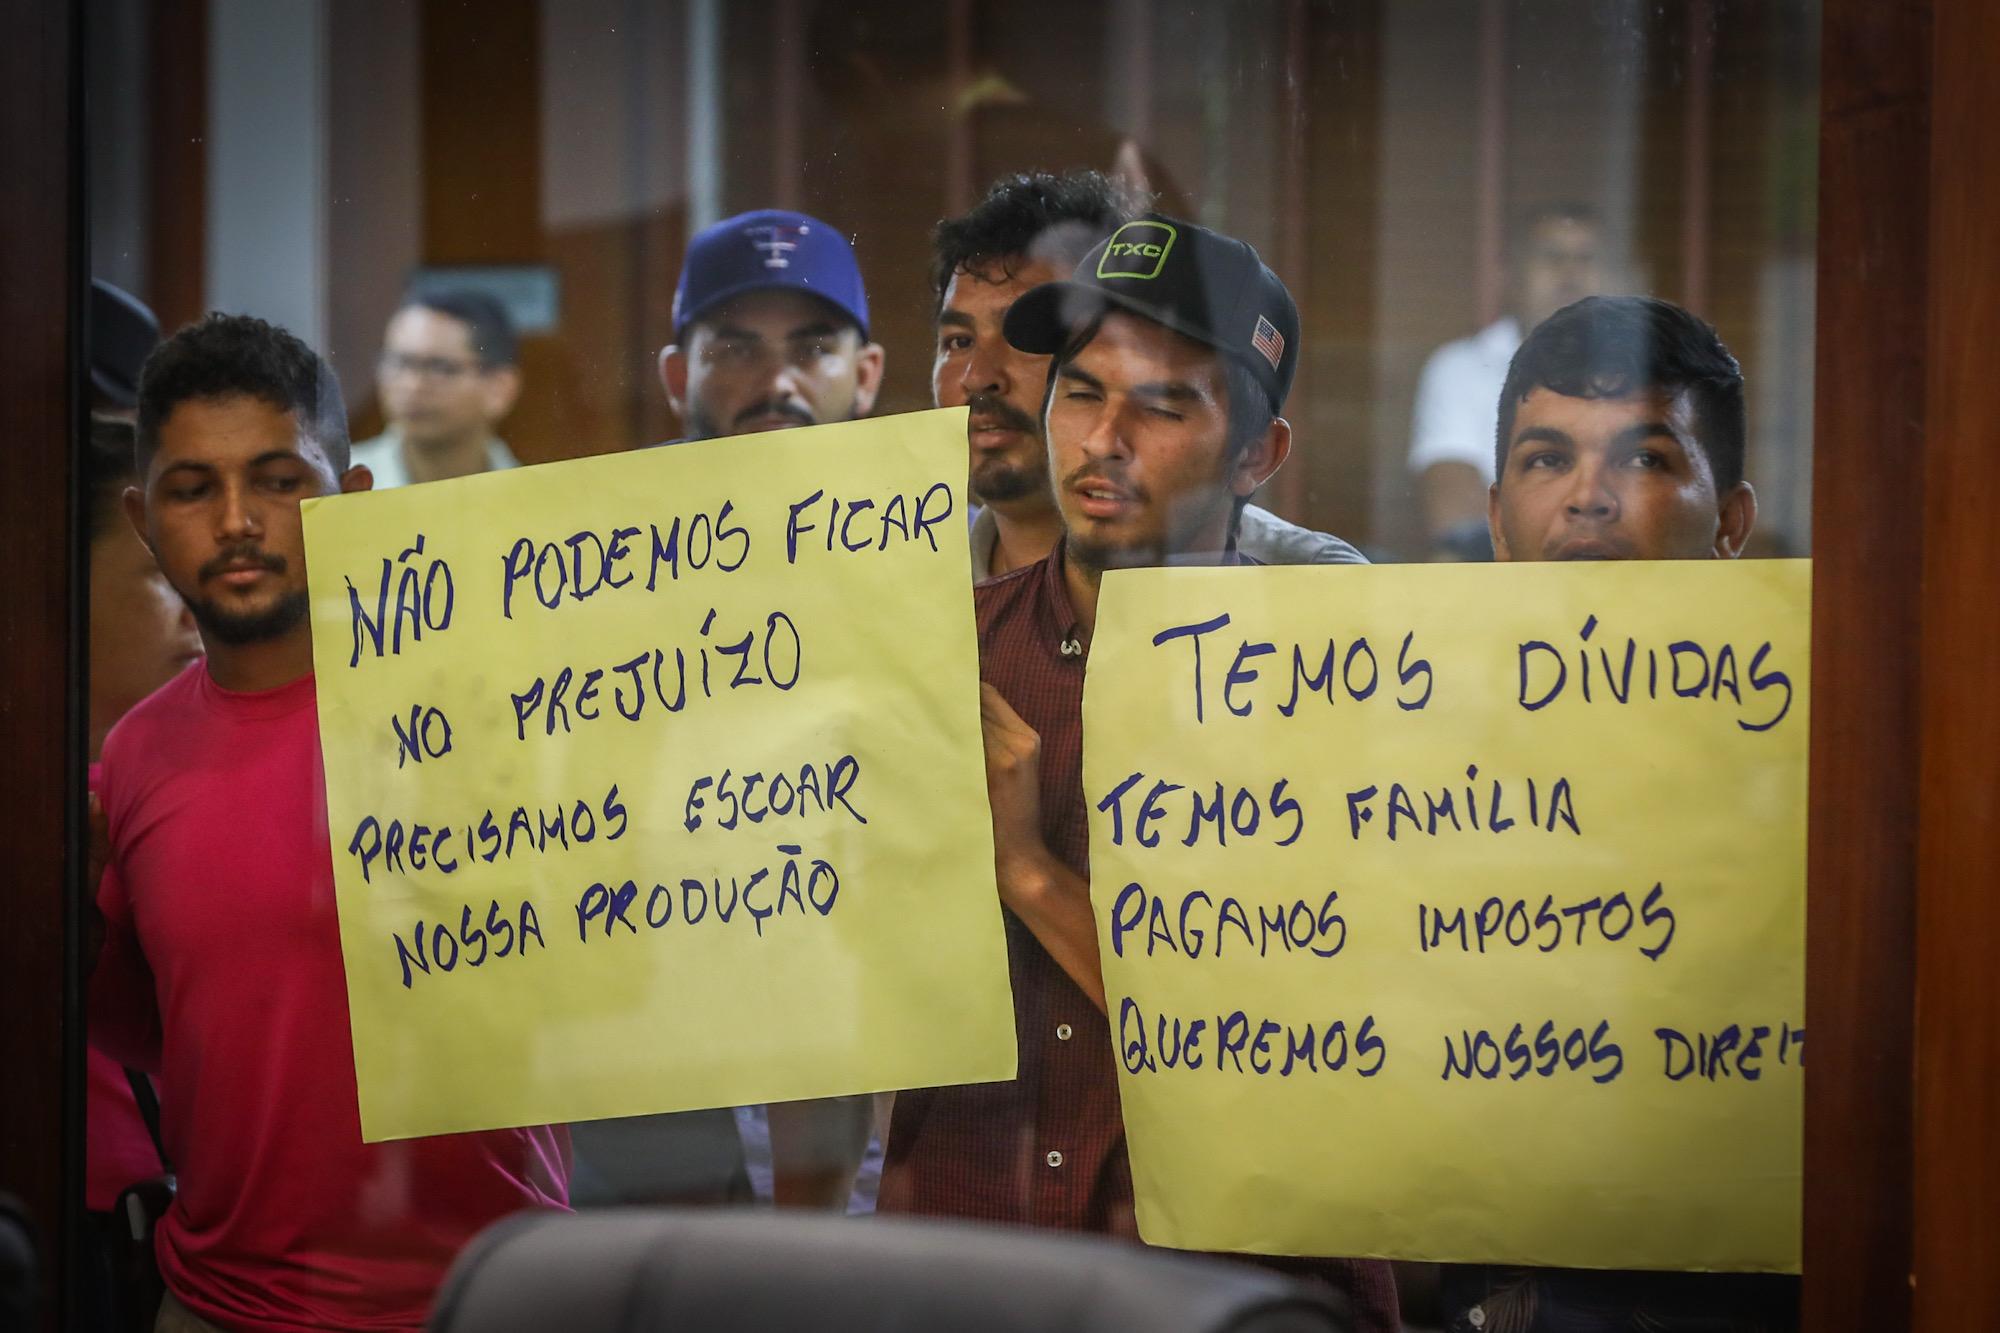 NÃO PODEMOS FICAR
NO PREJUÍZO
PRECISAMOS ESCOAR
NOSSA PRODUÇÃO
TXC
TEMOS DÍVIDAS
TEMOS FAMÍLIA
PAGAMOS IMPOSTOS
QUEREMOS NOSSOS DIREIT